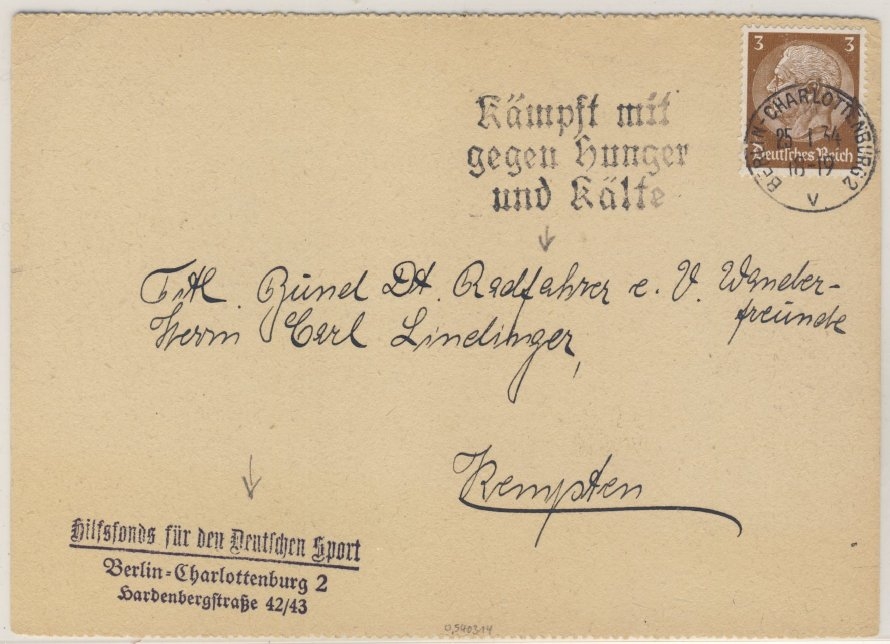 3 3
Deutsches Reich
BERLIN-CHARLOTTENBURG 2
25.1.34
18-19
V
Kämpft mit
gegen Hunger
und Kälte
Titl. Bund Dt. Radfahrer e. V. Wander-
freunde
Herrn Carl Lindinger,
Kempten
Hilfsfonds für den Deutschen Sport
Berlin-Charlottenburg 2
Hardenbergstraße 42/43
0,540314